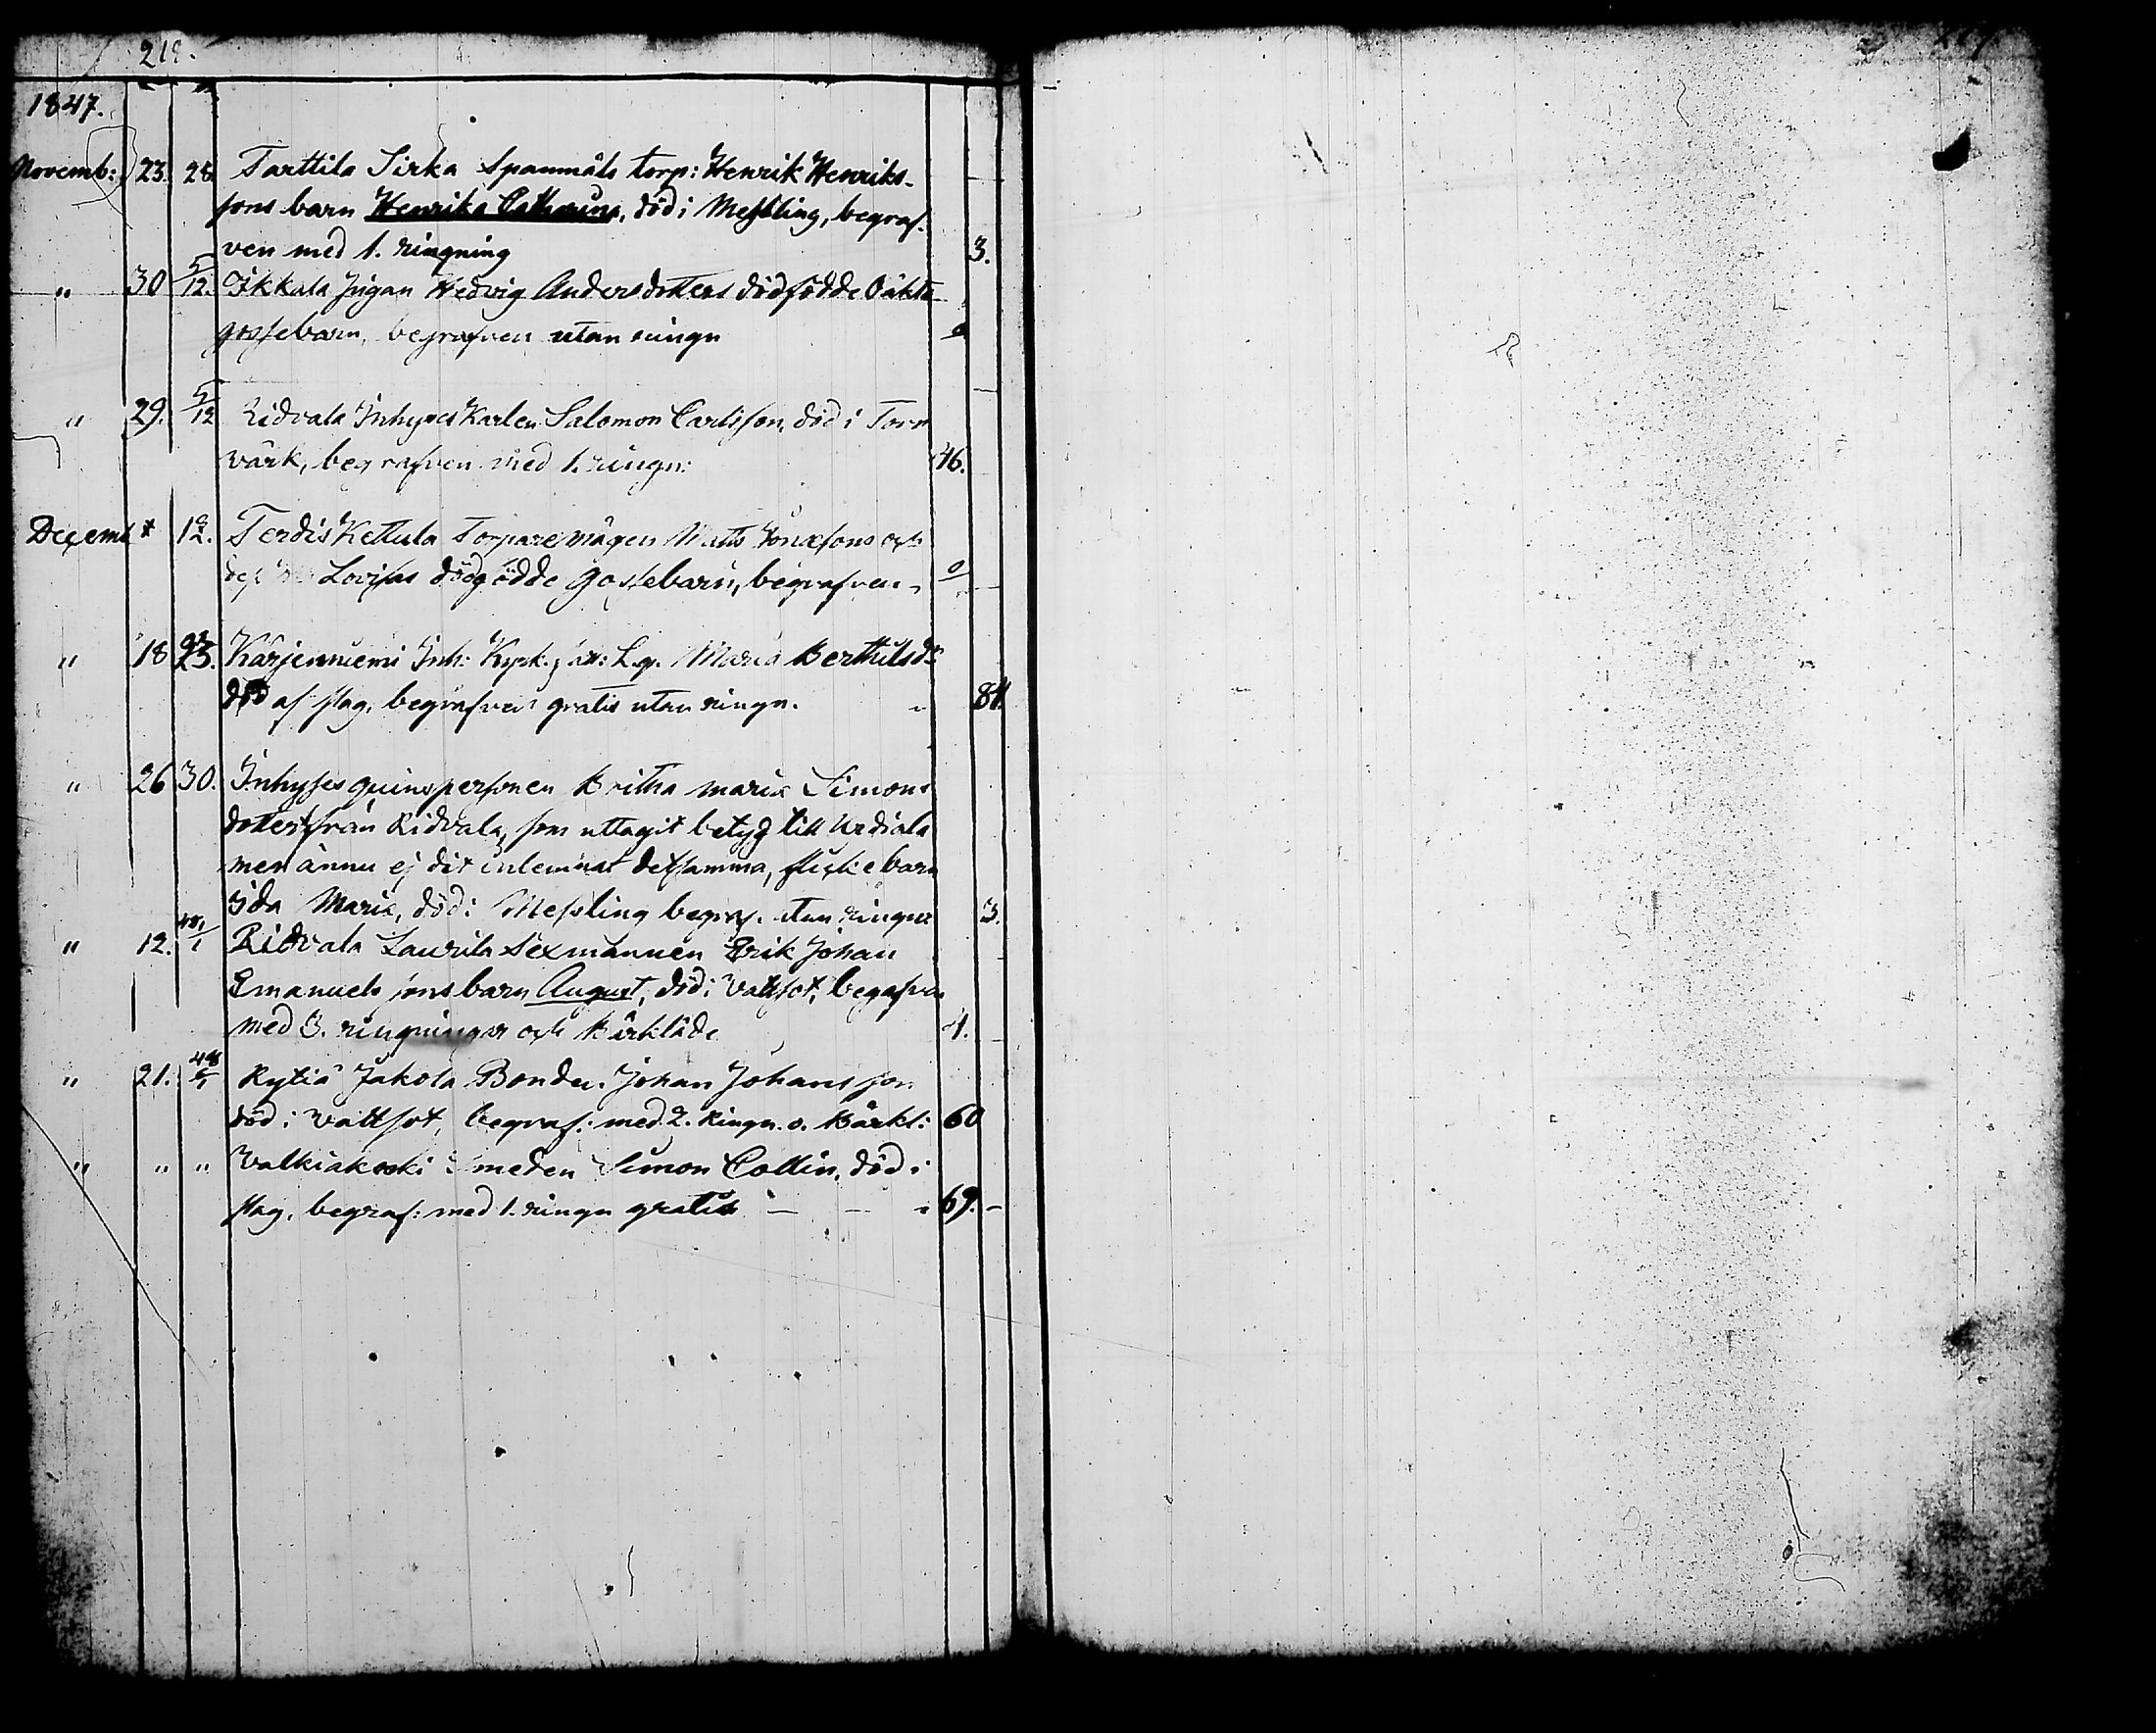 218.
1847.
Novemb: 23. 28. Tarttila Sirka Spanmåls torp: Henrik Henriks-
sons barn Henrika Catharina, död i Messling, begraf-
ven med 1. ringning 3.
" 30 5/12. Ikkala Jngan Hedvig Andersdotters dödfödde oäkta
gossebarn, begrafven utan ringn
" 29. 5/12 Ridvala Inhyses Karlen Salomon Carlsson, död i Torr
värk, begrafven med 1. ringn: 46.
Decemb 12. Terdis Kettula Torpare mågen Matts Jonæsons och
dess Lovisas dödfödde Gossebarn, begrafven 0
" 18 23. Kärjenniemi Inh: Maria Berthilsdr
död af slag, begrafven gratis utan ringn. 84
" 26 30. Inhyses quinspersonen Britha Maria Simons
dotters från Ridvala, som uttagit betyg till Urdiala
men ännu ej dit inlemnat detsamma, flickebarn
Ida Maria, död i Messling begraf. utan ringn 3.
" 12. Ridvala Laurila Sexmannen Erik Johan
Emanuelssons barn August, död i Vattsot, begrafven
med 3. ringningar och Bårkläde 4.
" 21. Rytiä Jakola Bonden Johan Johansson
död i Vattsot, begraf: med 2. Ringn. o. Bårkl: 60
" " " Walkiakoski Smeden Simon Collin, död i
slag, begraf: med 1. ringn gratis 69. -